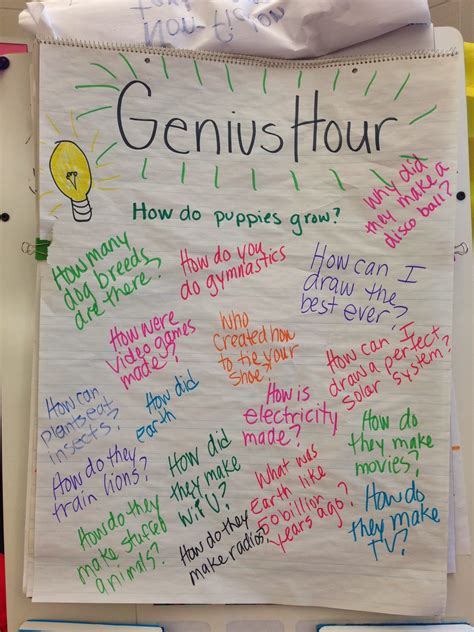 Genius Hour
How do puppies grow?
Why did
they make a
disco ball?
How many
dog breeds
are there?
How do you
do gymnastics
How can I
draw the
best ever?
How were
video games
made?
Who
created how
to tie your
shoe?
How can I
draw a perfect
solar system?
How can
plants eat
insects?
How did
earth
How is
electricity
made?
How do
they make
movies?
How do they
train lions?
How did
they make
Wii U?
What was
Earth like
50 billion
years ago?
How do
they make
TV?
How do they
make stuffed
animals?
How do they
make radios?